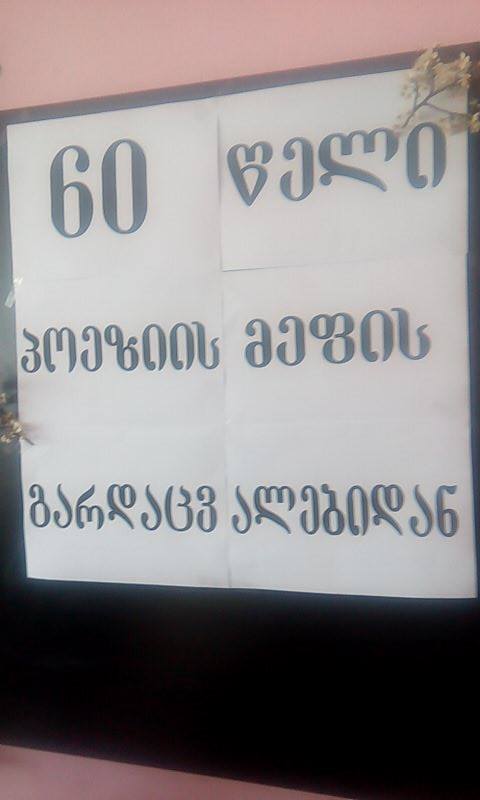 60 წელი
პოეზიის მეფის
გარდაცვალებიდან